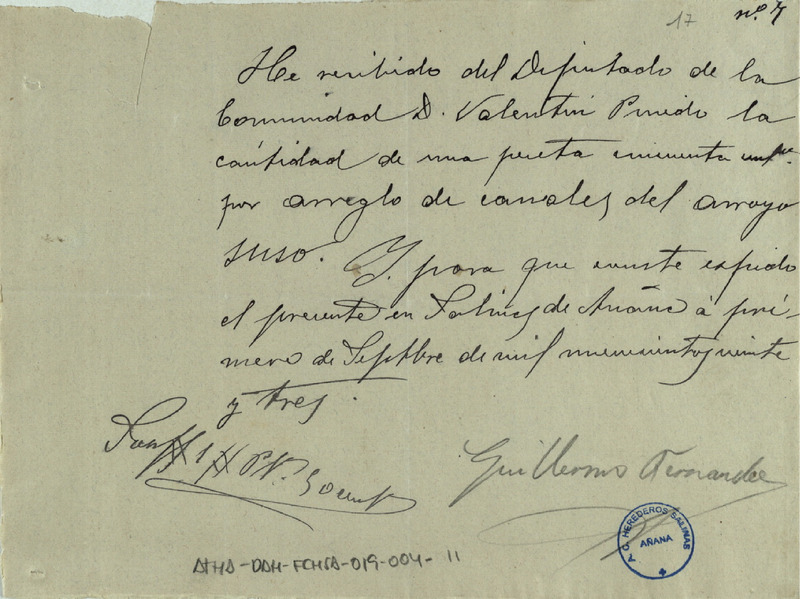 17 nº. 7
He recibido del Diputado de la
Comunidad D. Valentin Pinedo la
cantidad de una peseta cincuenta cent.
por arreglo de canales del arroyo
suso. Y para que conste expido
el presente en Salinas de Añana á pri-
mero de Septbre de mil novecientos veinte
y tres.
Son # 1 # Pts. 50 cent
Guillermo Fernandez
A. C. HEREDEROS SALINAS
AÑANA
ATHA-DAH-FCHSA-019-004-11